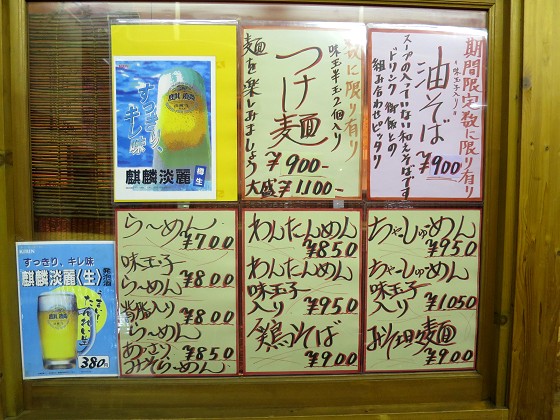 期間限定 数に限り有り
味玉入り
油そば
¥900-
スープの入っていない和えそばです
ドリンク、御飯との
組み合わせピッタリ
数に限り有り
味玉半玉2個入り
つけ麺
¥900-
大盛¥1,100-
麺を楽しみましょう
すっきり、
キレ味
麒麟淡麗
樽生
らーめん
¥700
味玉子
らーめん
¥800
背脂入り
らーめん
¥800
あっさり
みそらーめん
¥850
わんたんめん
¥850
わんたんめん
味玉子
入り
¥950
鶏そば
¥900
ちゃーしゅーめん
¥950
ちゃーしゅーめん
味玉子
入り
¥1050
みそ玉麺
¥900
すっきり、キレ味
麒麟淡麗〈生〉
発泡酒
380円